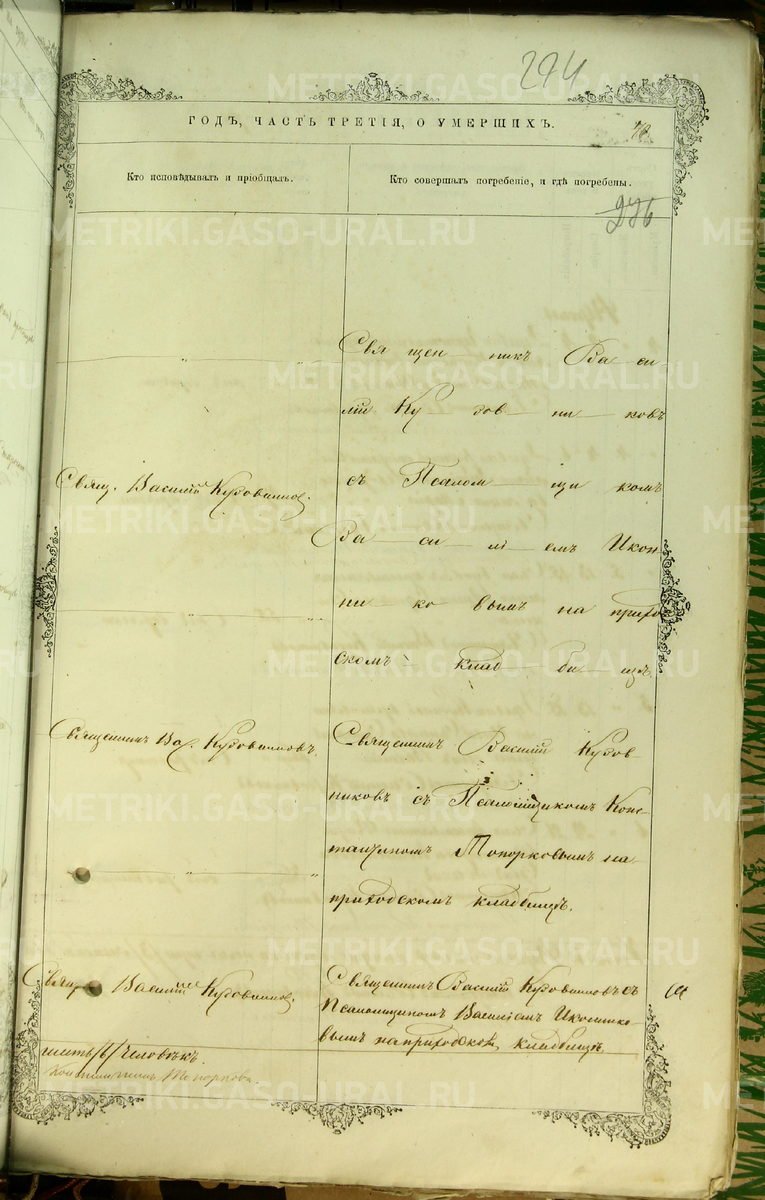 294
ГОДЪ, ЧАСТЬ ТРЕТІЯ, О УМЕРШИХЪ.
Кто исповѣдывалъ и пріобщалъ.
Кто совершалъ погребеніе, и гдѣ погребены.
296
Свя щен никъ Ва си
лій Ку зов ни ковъ
Свящ. Василій Кузовников.
съ Псалом щи комъ
Ва си лі емъ Икон
ни ко вымъ на прихо
скомъ клад би щѣ.
Священникъ Вас. Кузовниковъ.
Священникъ Василій Кузов
никовъ съ Псаломщикомъ Конс
тантиномъ Топорковымъ на
приходскомъ кладбищѣ.
Свящ. Василій Кузовников.
Священникъ Василій Кузовниковъ съ
Псаломщикомъ Василіемъ Иконнико
вымъ на приходском кладбищѣ.
человѣкъ.
METRIKI.GASO-URAL.RU